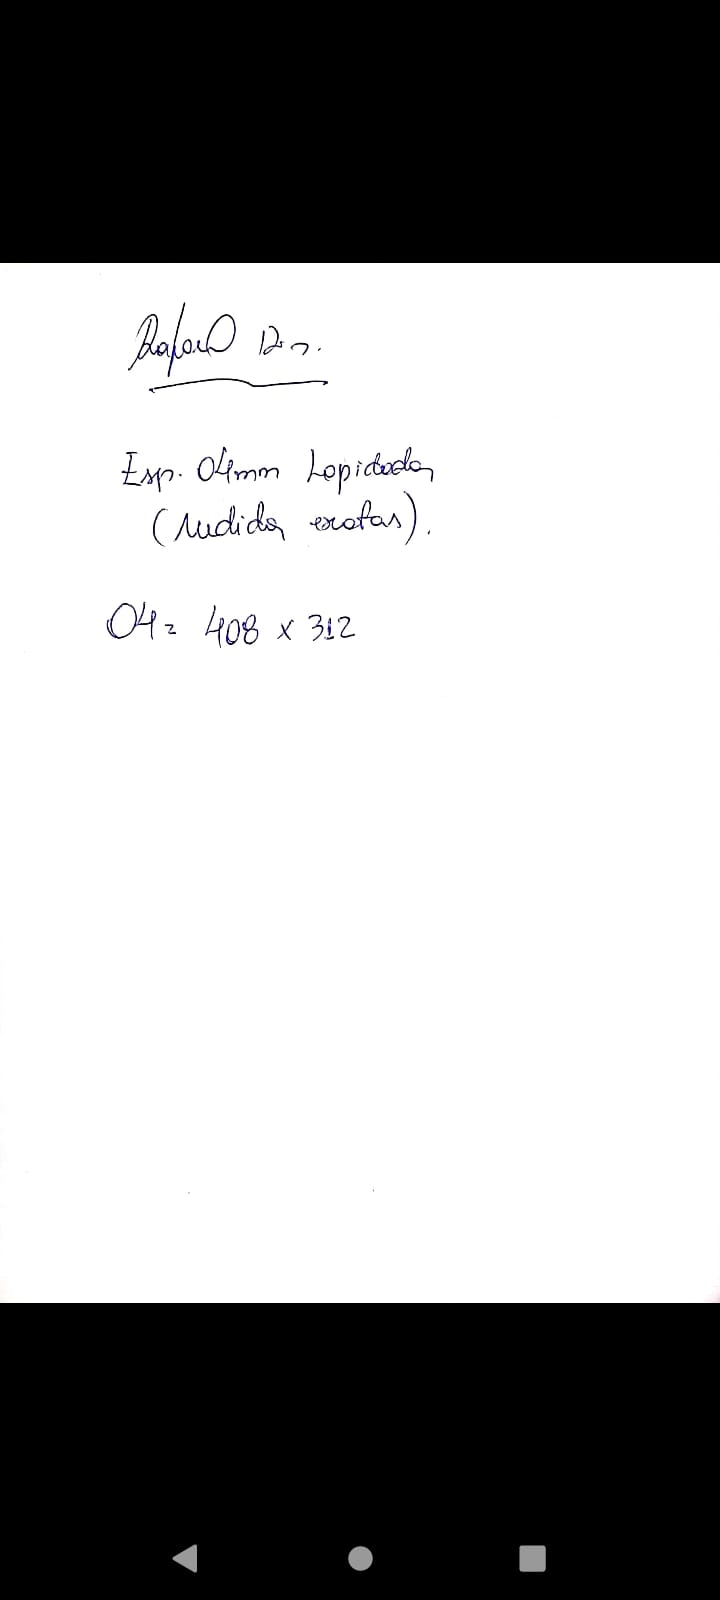 Rafael
Esp. 04mm Lapidados
(Medidas exatas).
04 = 408 x 312